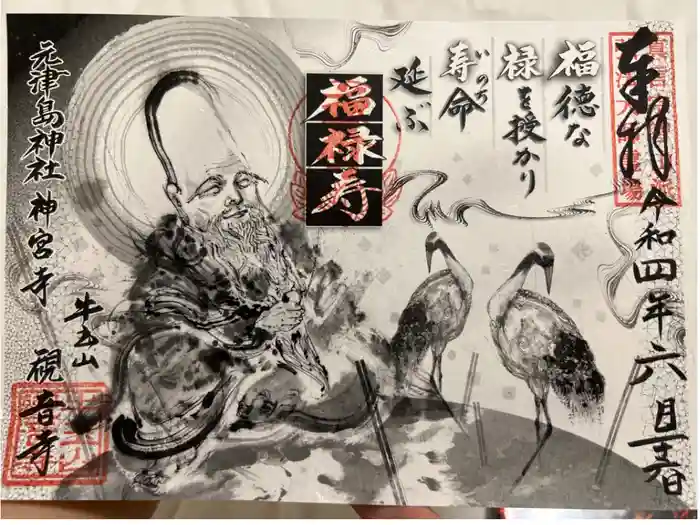 奉拝
令和四年六月吉日
福徳な
禄を授かり
寿命
いのち
延ぶ
福禄寿
元津島神社神宮寺
牛玉山
観音寺